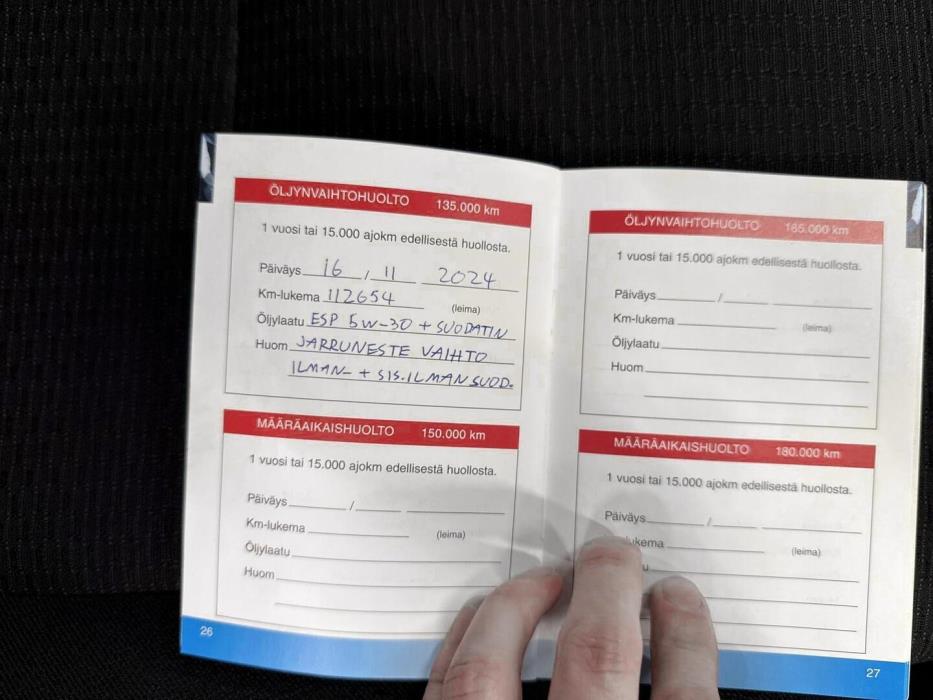 ÖLJYNVAIHTOHUOLTO 135.000 km
1 vuosi tai 15.000 ajokm edellisestä huollosta.
Päiväys 16 / 11 2024
Km-lukema 112654 (leima)
Öljylaatu ESP 5W-30 + SUODATIN
Huom JARRUNESTE VAIHTO
ILMAN- + SIS.ILMANSUOD.
MÄÄRÄAIKAISHUOLTO 150.000 km
1 vuosi tai 15.000 ajokm edellisestä huollosta.
Päiväys / 
Km-lukema (leima)
Öljylaatu
Huom
26
ÖLJYNVAIHTOHUOLTO 165.000 km
1 vuosi tai 15.000 ajokm edellisestä huollosta.
Päiväys /
Km-lukema (leima)
Öljylaatu
Huom
MÄÄRÄAIKAISHUOLTO 180.000 km
1 vuosi tai 15.000 ajokm edellisestä huollosta.
Päiväys /
(leima)
27